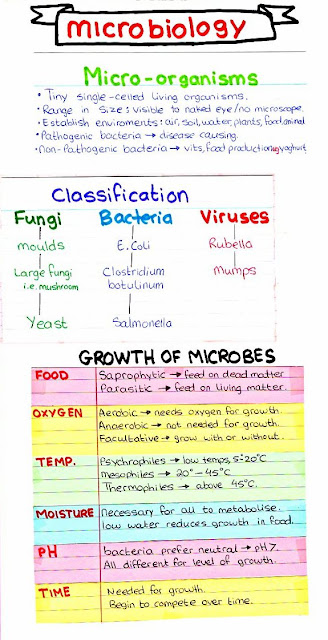 microbiology
Micro-organisms
• Tiny single-celled living organisms.
• Range in size: visible to naked eye/no microscope.
• Establish enviroments: air, soil, water, plants, food, animal
• Pathogenic bacteria → disease causing.
• Non-Pathogenic bacteria → vits, food production eg yoghurt
Classification
Fungi Bacteria Viruses
moulds E.Coli Rubella
Large fungi Clostridium Mumps
i.e. mushroom botulinum
Yeast Salmonella
GROWTH OF MICROBES
FOOD Saprophytic → feed on dead matter
Parasitic → feed on living matter.
OXYGEN Aerobic → needs oxygen for growth.
Anaerobic → not needed for growth.
Facultative → grow with or without.
TEMP. Psychrophiles → low temps, 5-20°C
mesophiles → 20°-45°C
Thermophiles → above 45°C.
MOISTURE Necessary for all to metabolise.
low water reduces growth in food.
PH bacteria prefer neutral → pH7.
All different for level of growth.
TIME Needed for growth.
Begin to compete over time.